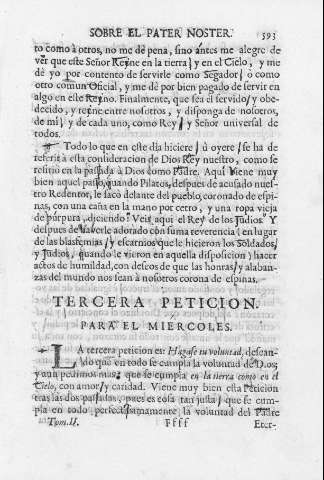 SOBRE EL PATER NOSTER. 593
to como à otros, no me dè pena, sino ántes me alegre de
vèr que este Señor Reyne en la tierra, y en el Cielo, y me
dè yo por contento de servirle como Segador, ò como
otro comun Oficial, y me dè por bien pagado de servir en
algo en este Reyno. Finalmente, que sea èl servido, y obe-
decido, y reyne entre nosotros, y disponga de nosotros,
de mi, y de cada uno, como Rey, y Señor universal de
todos.
Todo lo que en este dia hiciere, ù oyere, se ha de
referir à esta consideracion de Dios Rey nuestro, como se
refirió en la passada à Dios como Padre. Aqui viene muy
bien aquel passo, quando Pilatos, despues de acusado nues-
tro Redentor, le sacò delante del pueblo, coronado de espi-
nas, con una caña en la mano por cetro, y una ropa vieja
de purpura, diciendo: Veis aqui el Rey de los Judios. Y
despues de haverle adorado con suma reverencia (en lugar
de las blasfemias, y escarnios que le hicieron los Soldados,
y Judios, quando le vieron en aquella disposicion) hacer
actos de humildad, con deseos de que las honras, y alaban-
zas del mundo nos sean à nosotros corona de espinas.
TERCERA PETICION.
PARA EL MIERCOLES.
LA tercera peticion es: Hagase tu voluntad, desean-
do que en todo se cumpla la voluntad de Dios;
y aun pedimos mas, que se cumpla en la tierra como en el
Cielo, con amor, y caridad. Viene muy bien esta Peticion
tras las dos passadas, pues es cosa tan justa, que se cum-
pla en todo perfectissimamente la voluntad del Padre
Tom. II. Ffff Eter-